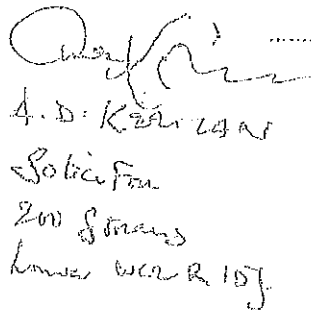 A.D. KERRIGAN
Solicitor
200 Strand
London WC2R 1DJ